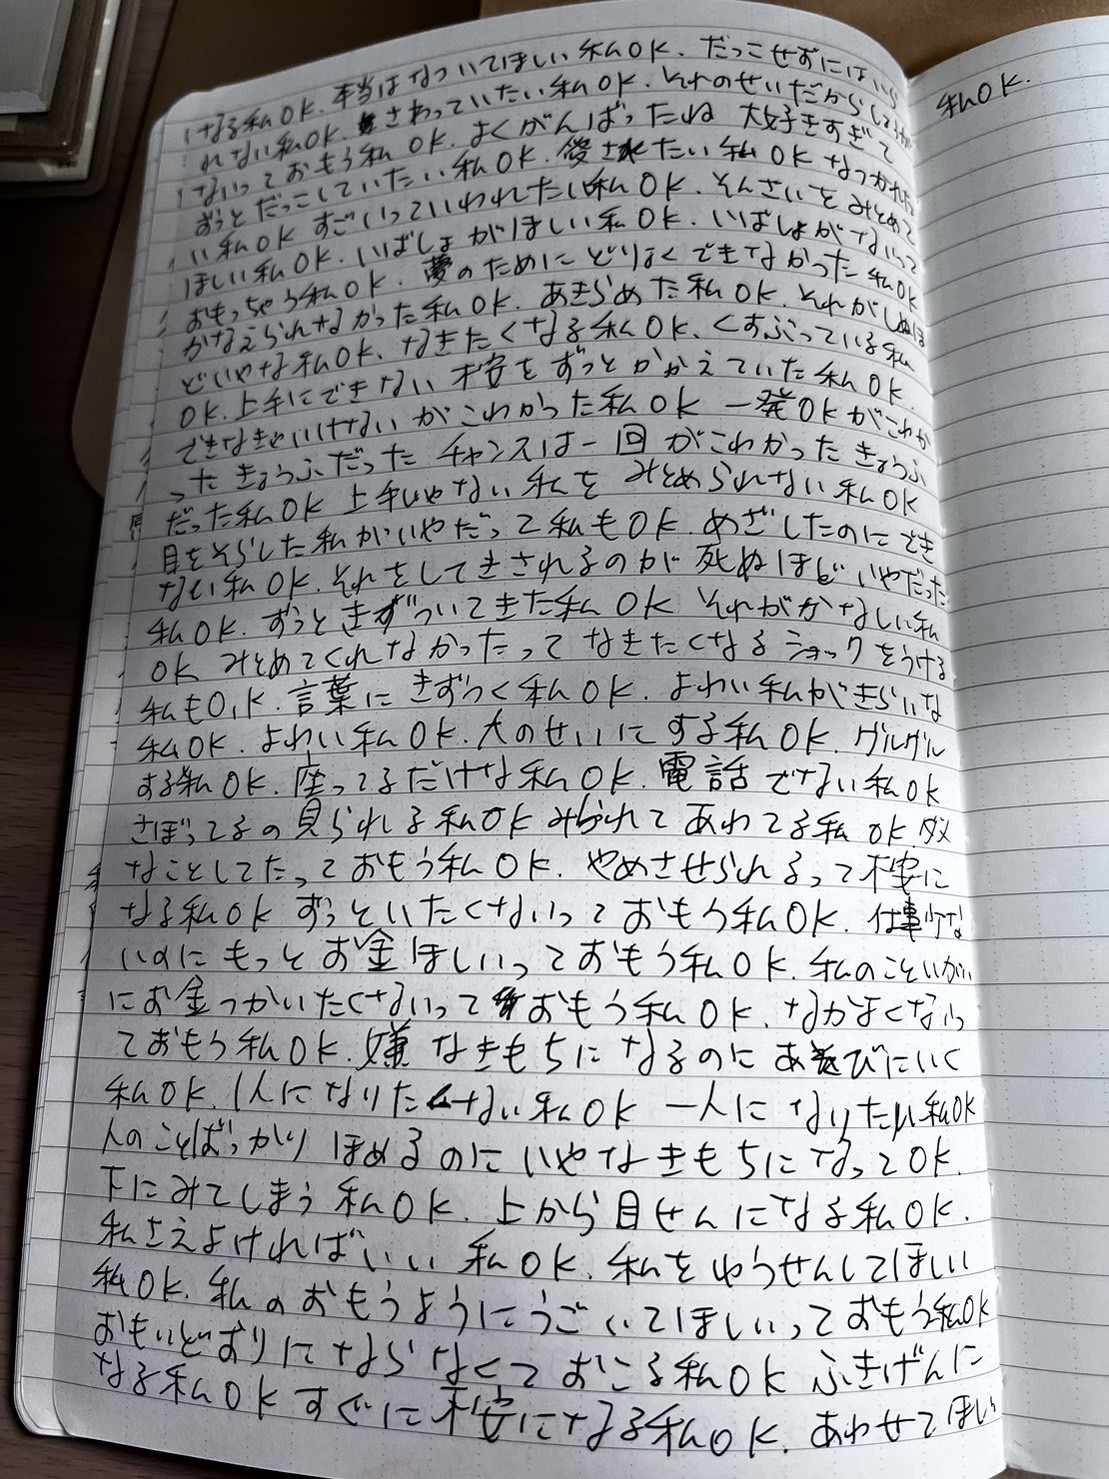 なる私OK. 本当はなついてほしい私OK. だっこせずにはいら
れない私OK. さわっていたい私OK. それのせいだから
ないっておもう私OK. よくがんばったね 大好きすぎて
ずっとだっこしていたい私OK. 愛されたい私OK なつかれた
い私OK すごいっていわれたい私OK. そんざいをみとめて
ほしい私OK. いばしょがほしい私OK. いばしょがないって
おもっちゃう私OK. 夢のためにどりょくできなかった私OK
かなえられなかった私OK. あきらめた私OK. それがしぬほ
どいやな私OK. なきたくなる私OK. くすぶっている私
OK. 上手にできない不安をずっとかかえていた私OK.
できなきゃいけないがこわかった私OK 一発OKがこわか
ったきょうふだった チャンスは一回がこわかったきょうふ
だった私OK 上手じゃない私をみとめられない私OK
目をそらした私がいやだって私もOK. めざしたのにでき
ない私OK. それをしてきされるのが死ぬほどいやだった
私OK. ずっときずついてきた私OK それがかなしい私
OK みとめてくれなかったってなきたくなるショックをうける
私もO,K. 言葉にきずつく私OK. よわい私がきらいな
私OK. よわい私OK. 犬のせいにする私OK. グルグル
する私OK. 座ってるだけな私OK. 電話でない私OK
さぼってるの見られる私OK みられてあわてる私OK. ダメ
なことしてたっておもう私OK. やめさせられるって不安に
なる私OK ずっといたくないっておもう私OK. 仕事少な
いのにもっとお金ほしいっておもう私OK. 私のこといがい
にお金つかいたくないっておもう私OK. なかよくないっ
ておもう私OK. 嫌なきもちになるのにあそびにいく
私OK. 1人になりたくない私OK 一人になりたい私OK
人のことばっかりほめるのにいやなきもちになってOK.
下にみてしまう私OK. 上から目せんになる私OK.
私さえよければいい私OK. 私をゆうせんしてほしい
私OK. 私のおもうようにうごいてほしいっておもう私OK
おもいどおりにならなくておこる私OK ふきげんに
なる私OK すぐに不安になる私OK. あわせてほしい
私OK.